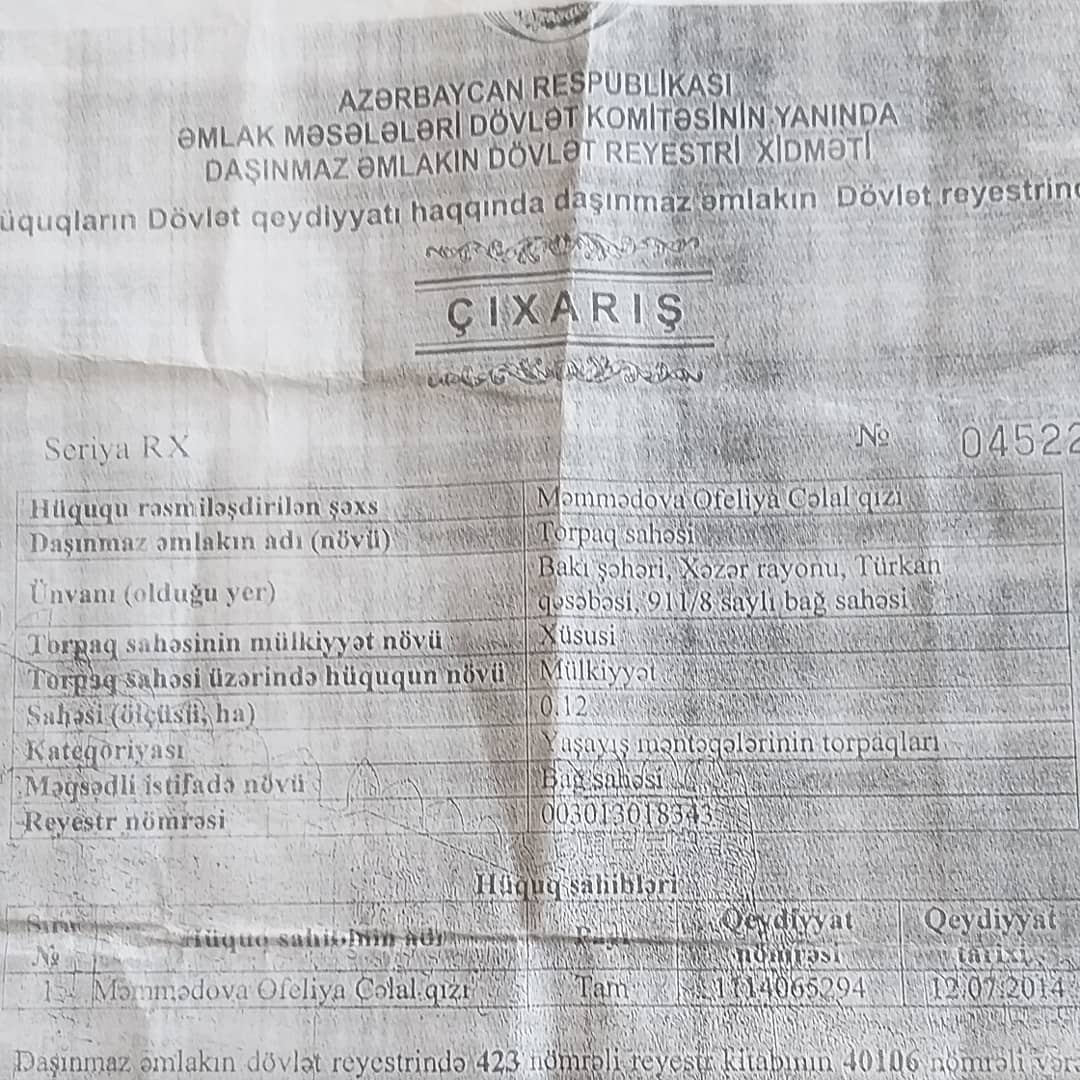 AZƏRBAYCAN RESPUBLİKASI
ƏMLAK MƏSƏLƏLƏRİ DÖVLƏT KOMİTƏSİNİN YANINDA
DAŞINMAZ ƏMLAKIN DÖVLƏT REYESTRİ XİDMƏTİ
üquqların Dövlət qeydiyyatı haqqında daşınmaz əmlakın Dövlət reyestrind
ÇIXARIŞ
Seriya RX № 04522
Hüququ rəsmiləşdirilən şəxs Məmmədova Ofeliya Cəlal qızı
Daşınmaz əmlakın adı (növü) Torpaq sahəsi
Ünvanı (olduğu yer) Bakı şəhəri, Xəzər rayonu, Türkan
qəsəbəsi, 911/8 saylı bağ sahəsi
Torpaq sahəsinin mülkiyyət növü Xüsusi
Torpaq sahəsi üzərində hüququn növü Mülkiyyət
Sahəsi (ölçüsü, ha) 0.12
Kateqoriyası Yaşayış məntəqələrinin torpaqları
Məqsədli istifadə növü Bağ sahəsi
Reyestr nömrəsi 003013018343
Hüquq sahibləri
Sıra Hüquq sahibinin adı Qeydiyyat Qeydiyyat
№ nömrəsi tarixi
1 Məmmədova Ofeliya Cəlal qızı Tam 1114065294 12.07.2014
Daşınmaz əmlakın dövlət reyestrində 423 nömrəli reyestr kitabının 40106 nömrəli vərə